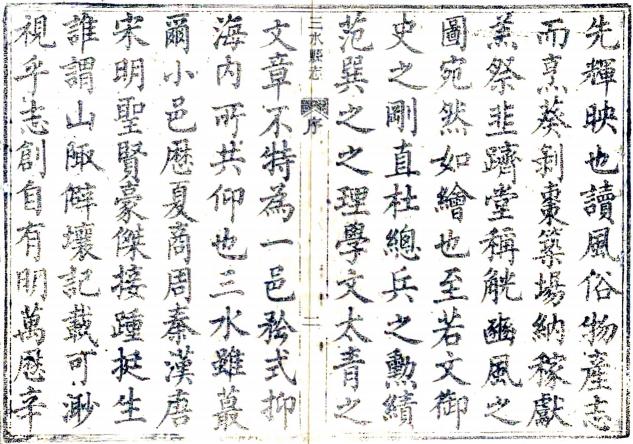 先輝映也讀風俗物產志
而烹葵剝棗築場納稼獻
羔祭韭躋堂稱觥豳風之
圖宛然如繪也至若文御
史之剛直杜總兵之勳績
范巽之之理學文太青之
三水縣志
序
二
文章不特為一邑矜式抑
海内所共仰也三水雖蕞
爾小邑歷夏商周秦漢唐
宋明聖賢豪傑接踵挺生
誰謂山陬僻壤記載可渺
視乎志創自有明萬歷辛